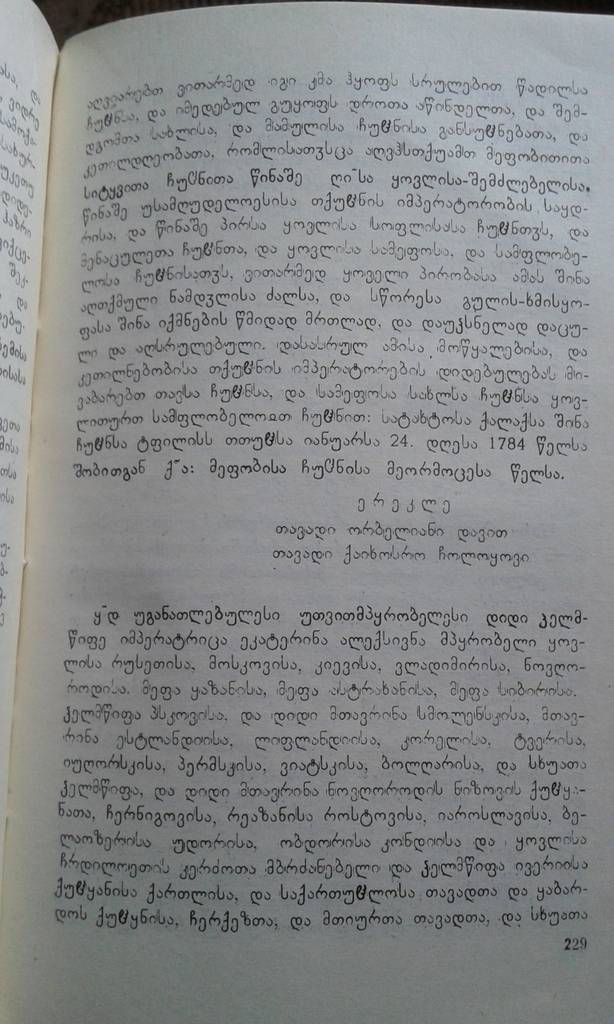 აღვიარებთ ვითარმედ იგი კმა ჰყოფს სრულებით წადილსა
ჩუჱნსა, და იმედებულ გუყოფს დროთა აწინდელთა, და შემ-
დგომთა სახლისა, და მამულისა ჩუჱნისა განსუჱნებათა, და
კეთილდღეობათა, რომლისათჳსცა აღვჰსთქუამთ მეფობითითა
სიტყვითა ჩუჱნითა წინაშე ღი~სა ყოვლისა-შემძლებელისა,
წინაშე უსამღუდელოესისა თქუჱნის იმპერატორობის საყდ-
რისა, და წინაშე პირსა ყოვლისა სოფლისასა ჩუჱნთჳს, და
მენაცულეთა ჩუჱნთა, და ყოვლისა სამეფოსა, და სამფლობე-
ლოსა ჩუჱნისათჳს, ვითარმედ ყოველი პირობასა ამას შინა
აღთქმული ნამდჳლისა ძალსა, და სწორესა გულის-ხმისყო-
ფასა შინა იქმნების წმიდად მრთლად, და დაუკსნელად დაცუ-
ლი და აღსრულებული. დასასრულ ამისა მოწყალებისა, და
კეთილნებობისა თქუჱნის იმპერატორების დიდებულებას მი-
ვაბარებთ თავსა ჩუჱნსა, და სამეფოსა სახლსა ჩუჱნსა ყოვ-
ლითურთ სამფლობელოით ჩუჱნით: სატახტოსა ქალაქსა შინა
ჩუჱნსა ტფილისს თთუჱსა იანუარსა 24. დღესა 1784 წელსა
შობითგან ქ~ა: მეფობისა ჩუჱნისა მეორმოცესა წელსა.
ერეკლე
თავადი ორბელიანი დავით
თავადი ქაიხოსრო ჩოლოყოვი
ყ~დ უგანათლებულესი უთვითმპყრობელესი დიდი ჴელმ-
წიფე იმპერატრიცა ეკატერინა ალექსივნა მპყრობელი ყოვ-
ლისა რუსეთისა, მოსკოვისა, კიევისა, ვლადიმირისა, ნოვღო-
როდისა. მეფა ყაზანისა, მეფა ასტრახანისა, მეფა სიბირისა.
ჴელმწიფა პსკოვისა, და დიდი მთავრინა სმოლენსკისა, მთავ-
რინა ესტლანდიისა, ლიფლანდიისა, კორელისა, ტვერისა,
იუღორსკისა, პერმსკისა, ვიატსკისა, ბოლღარისა, და სხუათა
ჴელმწიფა, და დიდი მთავრინა ნოვღოროდის ნიზოვის ქუჱყა-
ნათა, ჩერნიგოვისა, რეაზანისა როსტოვისა, იაროსლავისა, ბე-
ლაოზერისა უდორისა, ობდორისა კონდიისა და ყოვლისა
ჩრდილოეთის კერძოთა მბრძანებელი და ჴელმწიფა ივერიისა
ქუჱყანისა ქართლისა, და საქართუჱლოსა თავადთა და ყაბარ-
დოს ქუჱყნისა, ჩერქეზთა, და მთიურთა თავადთა, და სხუათა
229